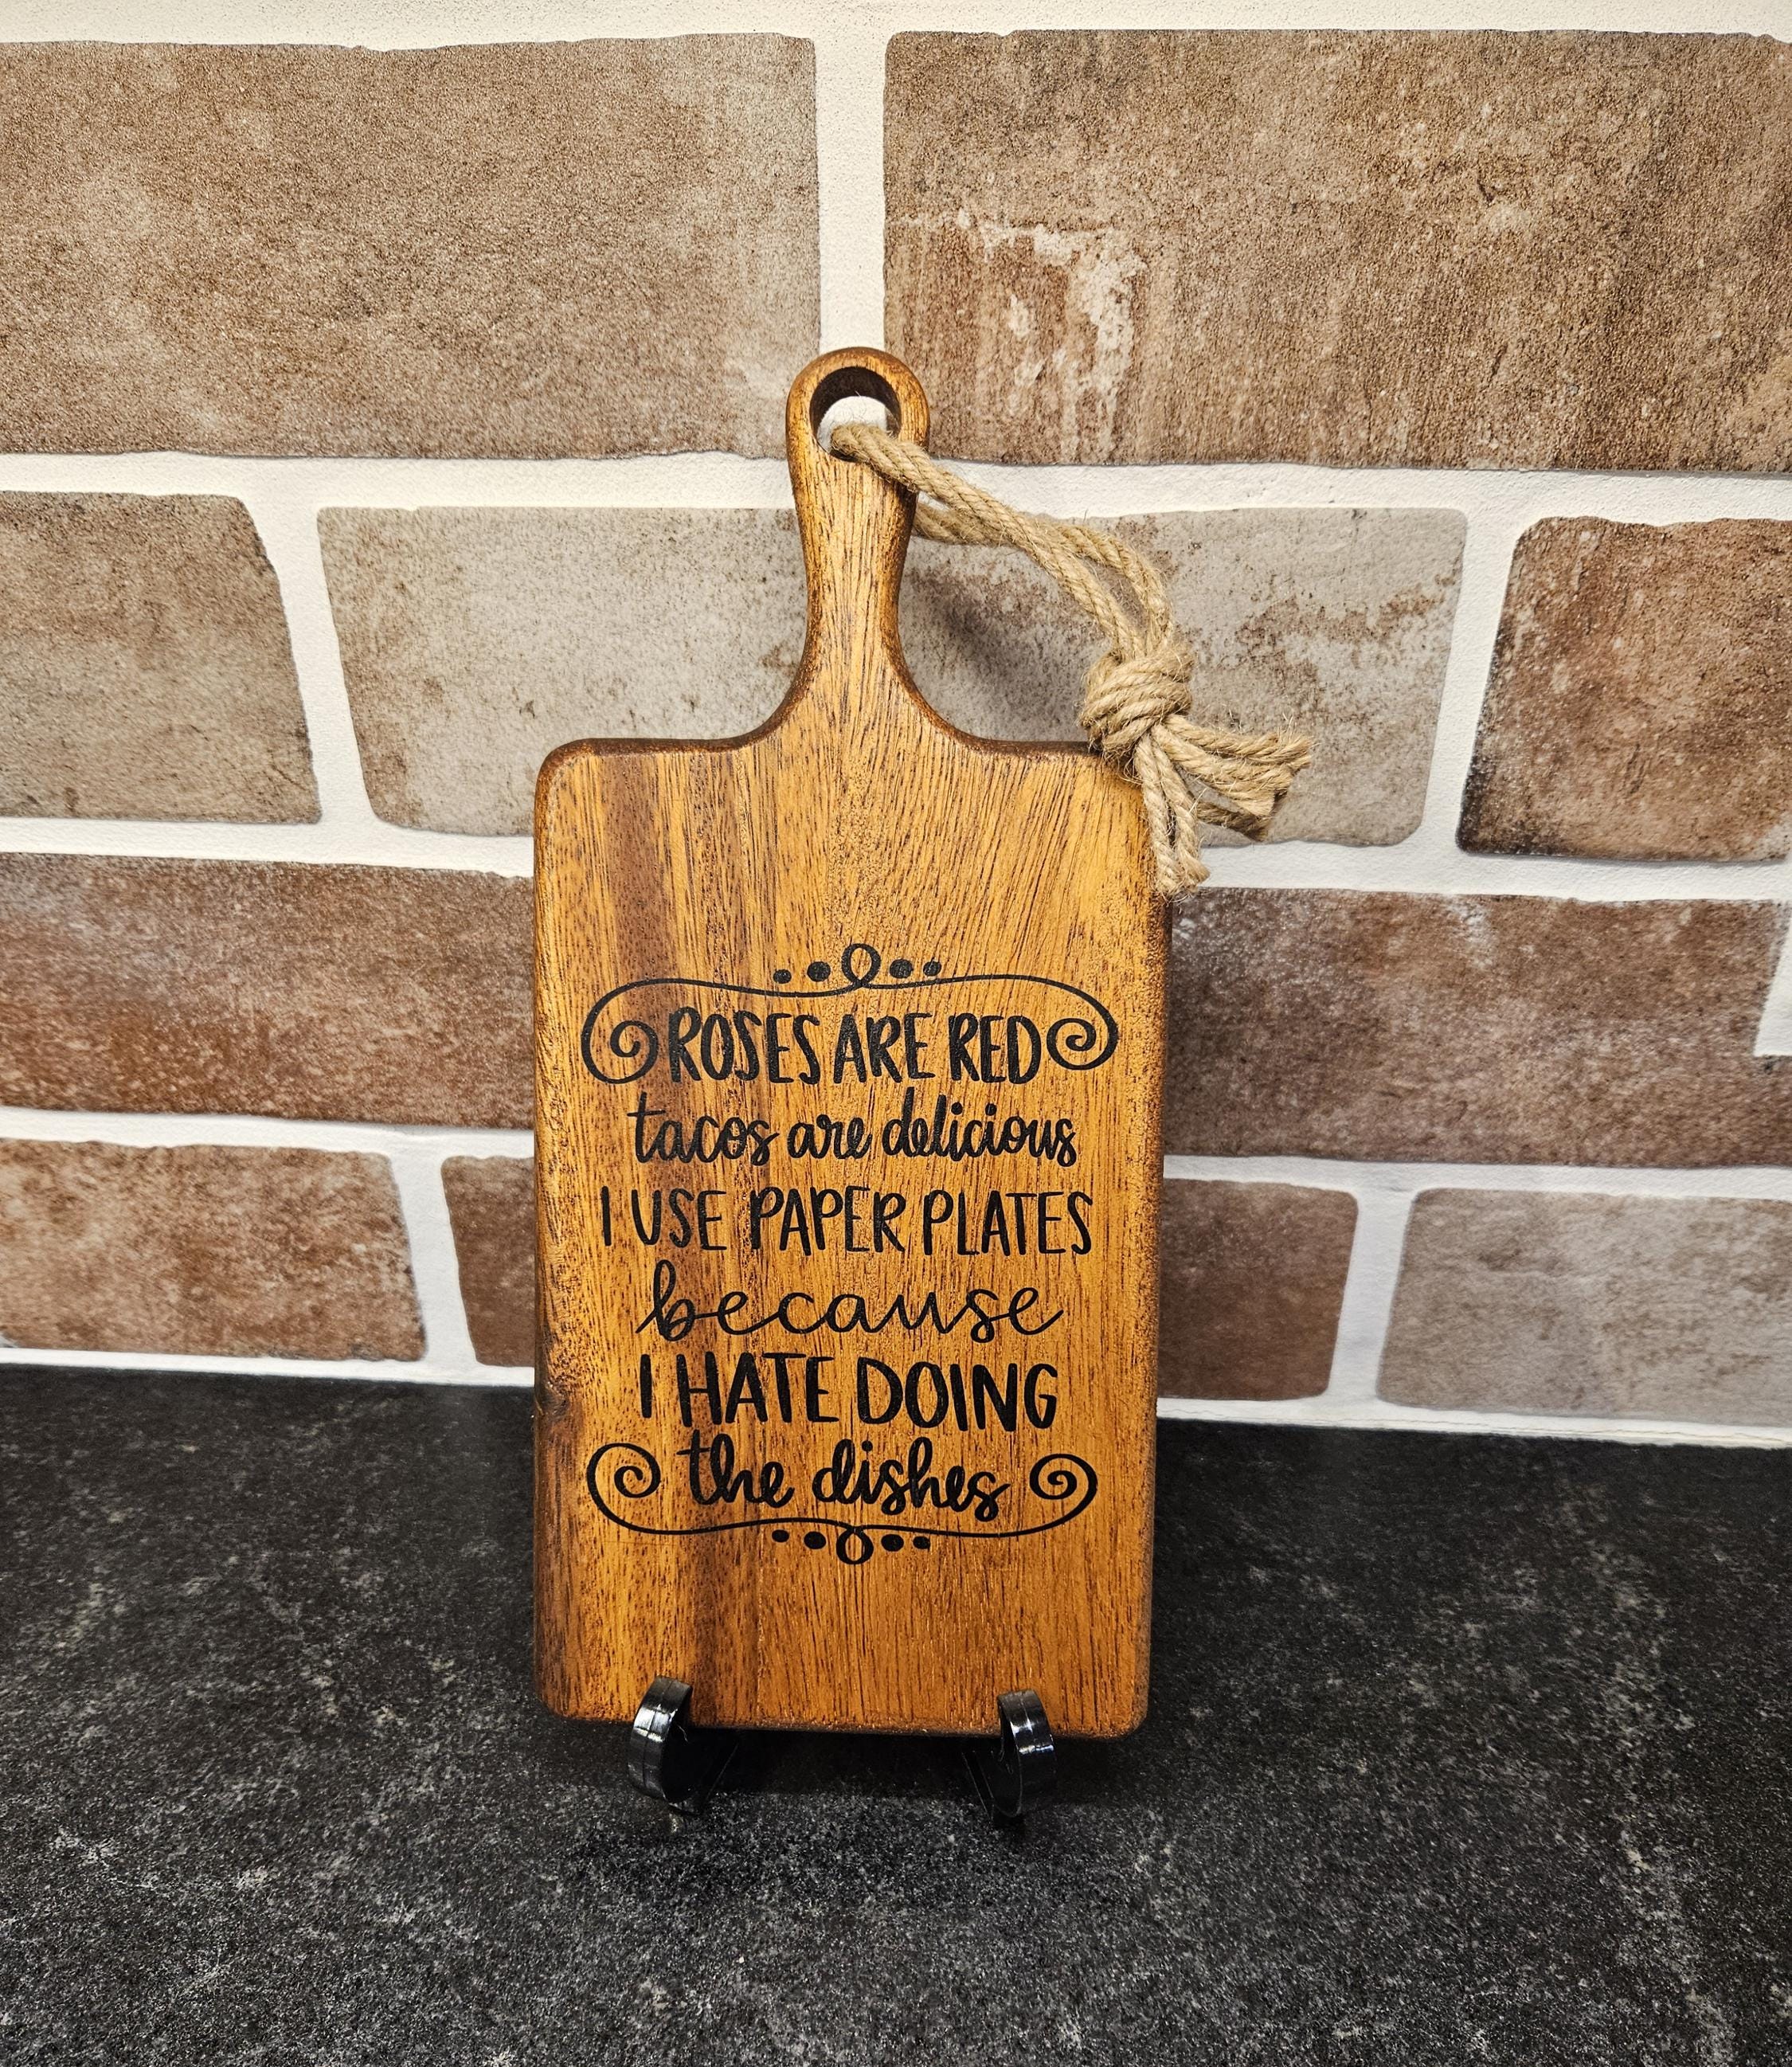 ROSES ARE RED
tacos are delicious
I USE PAPER PLATES
because
I HATE DOING
the dishes